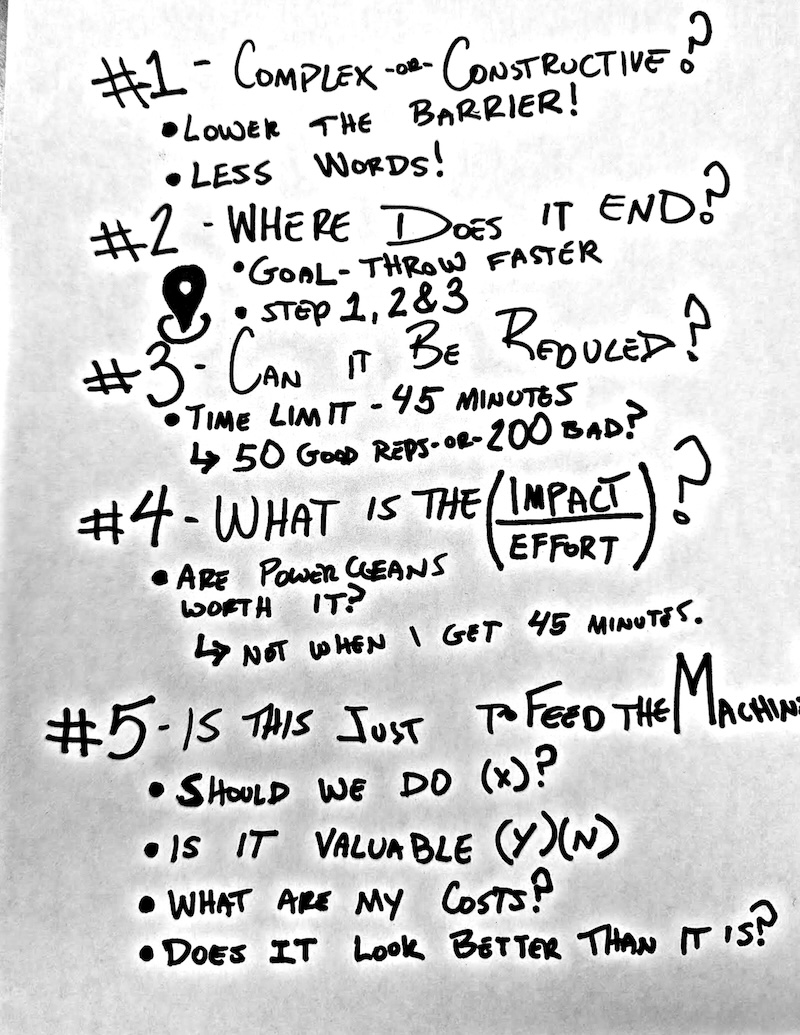 #1 - COMPLEX -OR- CONSTRUCTIVE?
• LOWER THE BARRIER!
• LESS WORDS!
#2 - WHERE DOES IT END?
• GOAL - THROW FASTER
• STEP 1, 2 & 3
#3 - CAN IT BE REDUCED?
• TIME LIMIT - 45 MINUTES
↳ 50 GOOD REPS -OR- 200 BAD?
#4 - WHAT IS THE (IMPACT
EFFORT)?
• ARE POWER CLEANS
WORTH IT?
↳ NOT WHEN I GET 45 MINUTES.
#5 - IS THIS JUST TO FEED THE MACHIN
• SHOULD WE DO (X)?
• IS IT VALUABLE (Y)(N)
• WHAT ARE MY COSTS?
• DOES IT LOOK BETTER THAN IT IS?